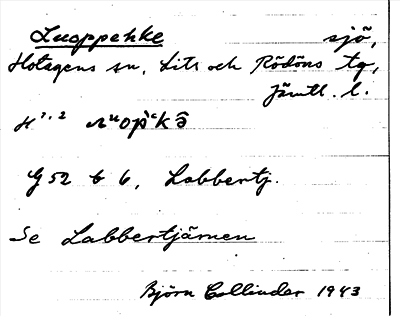 Luoppehke sjö,
Hotagens sn, Lits och Rödöns tg,
Jämtl. l.
G 52 b 6, Labbertj.
Se Labbertjärnen
Björn Collinder 1943